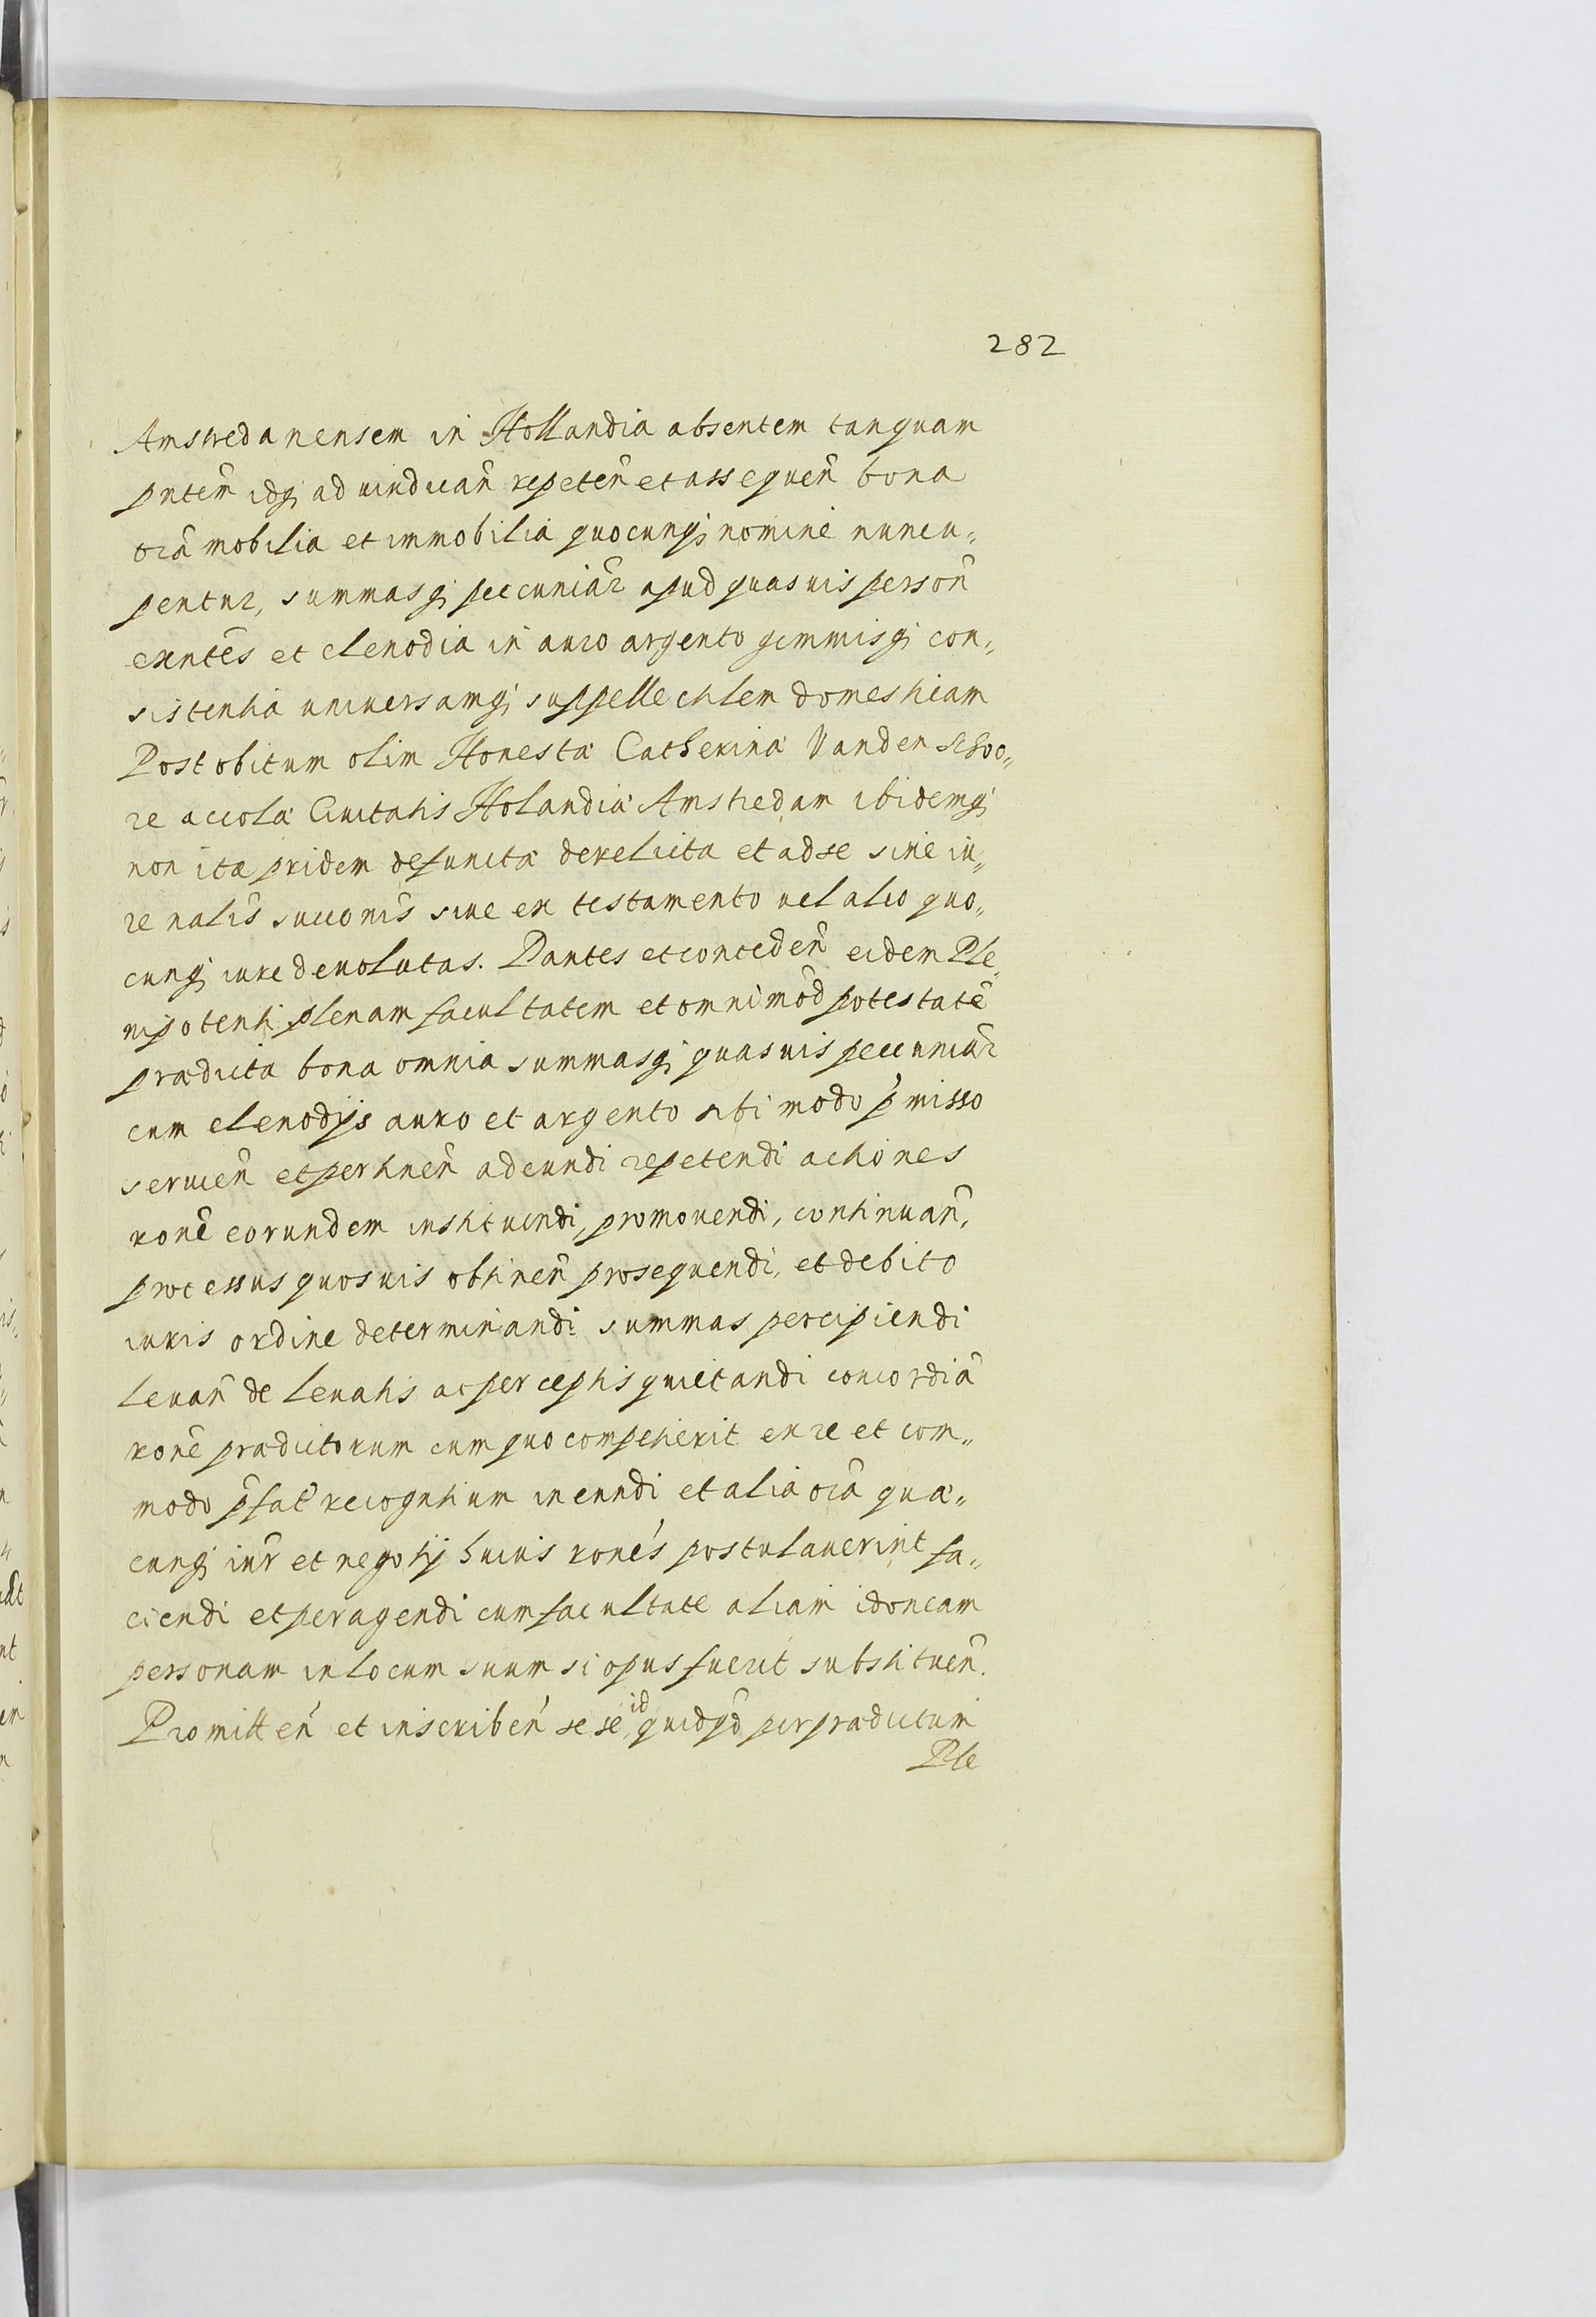 282
Amstredanensem in Hollandia absentem tanquam
pñtem idq; ad uindicañ repeteñ et assequeñ bona
oĩa mobilia et immobilia quocunq; nomine nuncu„
pentur, summasq; peccuniar̃ apud quasuis persoñ
exñtes et clenodia in auro argento gemmisq; con„
sistentia uniuersamq; suppellectilem domesticam
Post obitum olim Honestæ Catherinæ Vanden
re accolæ Ciuitatis Holandiæ Amstredam ibidemq;
non ita pridem defunctæ derelicta et ad se siue iu„
re nalis̃ succoñis siue ex testamento uel alio quo„
cunq; iure deuolutas. Dantes et concedeñ eidem Ple„
nipotenti plenam facultatem et omnimod̃ potestatẽ
prædicta bona omnia summasq; quasuis peccuniar̃
cum clenodijs auro et argento sibi modo p̃misso
seruieñ et pertineñ adeundi repetendi actiones
roñe eorundem instituendi, promouendi, continuañ,
processus quosuis obtineñ prosequendi, et debito
iuris ordine determinandi summas percipiendi
leuañ de leuatis ac perceptis quietandi concordiã
roñe prædictorum cum quo competierit ex re et com„
modo p̃fat̃ recognitium ineundi et alia oĩa quæ„
cunq; iur̃ et negotij huius roñes postulauerint fa„
ciendi et peragendi cum facultate aliam idoneam
personam in locum suum si opus fuerit substitueñ.
Promitteñ et inscribeñ sese id quidq̃d per prædictum
Ple